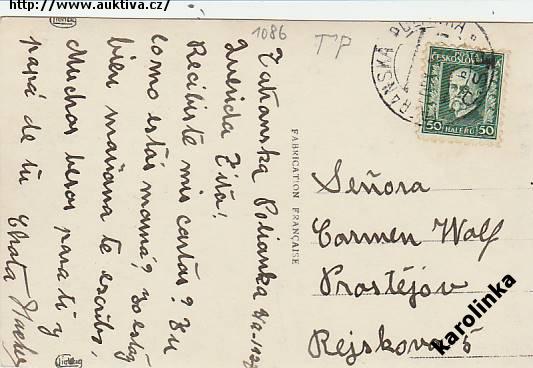 http://www.auktiva.cz/
1086
TP
Takanska Polianka
Querida Zita!
Recibiste mis cartas? Zu
como estás mamá? Yo estoy
bien mañana te escribo.
Muchos besos para ti y
papá de tu Chata
FABRICATION FRANÇAISE
POŠTA
ČESKOSLOVENSKÁ
50 HALÉŘŮ 50
Señora
Carmen Wolf
Prostějov
Rejskova 5
karolinka